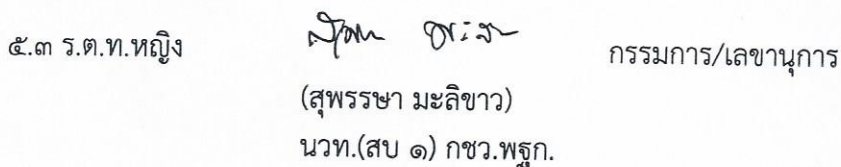 ๕.๓ ร.ต.ท.หญิง กรรมการ/เลขานุการ
(สุพรรษา มะลิขาว)
นวท.(สบ ๑) กชว.พฐก.